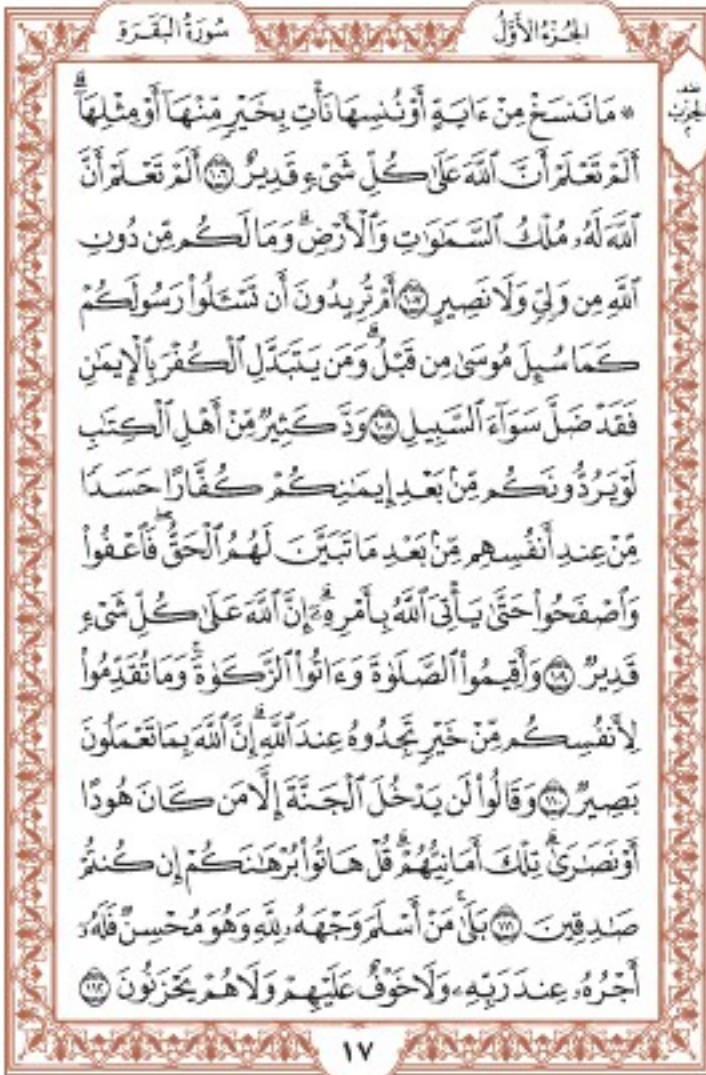 الجُزْءُ الأَوَّلُ
سُورَةُ البَقَرَةِ
نصف الحزب ٢
۞ مَا نَنسَخْ مِنْ ءَايَةٍ أَوْ نُنسِهَا نَأْتِ بِخَيْرٍ مِّنْهَآ أَوْ مِثْلِهَآۗ
أَلَمْ تَعْلَمْ أَنَّ ٱللَّهَ عَلَىٰ كُلِّ شَىْءٍ قَدِيرٌ ١٠٦ أَلَمْ تَعْلَمْ أَنَّ
ٱللَّهَ لَهُۥ مُلْكُ ٱلسَّمَٰوَٰتِ وَٱلْأَرْضِۗ وَمَا لَكُم مِّن دُونِ
ٱللَّهِ مِن وَلِىٍّ وَلَا نَصِيرٍ ١٠٧ أَمْ تُرِيدُونَ أَن تَسْـَٔلُوا۟ رَسُولَكُمْ
كَمَا سُئِلَ مُوسَىٰ مِن قَبْلُۗ وَمَن يَتَبَدَّلِ ٱلْكُفْرَ بِٱلْإِيمَٰنِ
فَقَدْ ضَلَّ سَوَآءَ ٱلسَّبِيلِ ١٠٨ وَدَّ كَثِيرٌ مِّنْ أَهْلِ ٱلْكِتَٰبِ
لَوْ يَرُدُّونَكُم مِّنۢ بَعْدِ إِيمَٰنِكُمْ كُفَّارًا حَسَدًا
مِّنْ عِندِ أَنفُسِهِم مِّنۢ بَعْدِ مَا تَبَيَّنَ لَهُمُ ٱلْحَقُّۖ فَٱعْفُوا۟
وَٱصْفَحُوا۟ حَتَّىٰ يَأْتِىَ ٱللَّهُ بِأَمْرِهِۦٓۗ إِنَّ ٱللَّهَ عَلَىٰ كُلِّ شَىْءٍ
قَدِيرٌ ١٠٩ وَأَقِيمُوا۟ ٱلصَّلَوٰةَ وَءَاتُوا۟ ٱلزَّكَوٰةَۚ وَمَا تُقَدِّمُوا۟
لِأَنفُسِكُم مِّنْ خَيْرٍ تَجِدُوهُ عِندَ ٱللَّهِۗ إِنَّ ٱللَّهَ بِمَا تَعْمَلُونَ
بَصِيرٌ ١١٠ وَقَالُوا۟ لَن يَدْخُلَ ٱلْجَنَّةَ إِلَّا مَن كَانَ هُودًا
أَوْ نَصَٰرَىٰۗ تِلْكَ أَمَانِيُّهُمْۗ قُلْ هَاتُوا۟ بُرْهَٰنَكُمْ إِن كُنتُمْ
صَٰدِقِينَ ١١١ بَلَىٰۚ مَنْ أَسْلَمَ وَجْهَهُۥ لِلَّهِ وَهُوَ مُحْسِنٌ فَلَهُۥٓ
أَجْرُهُۥ عِندَ رَبِّهِۦ وَلَا خَوْفٌ عَلَيْهِمْ وَلَا هُمْ يَحْزَنُونَ ١١٢
١٧